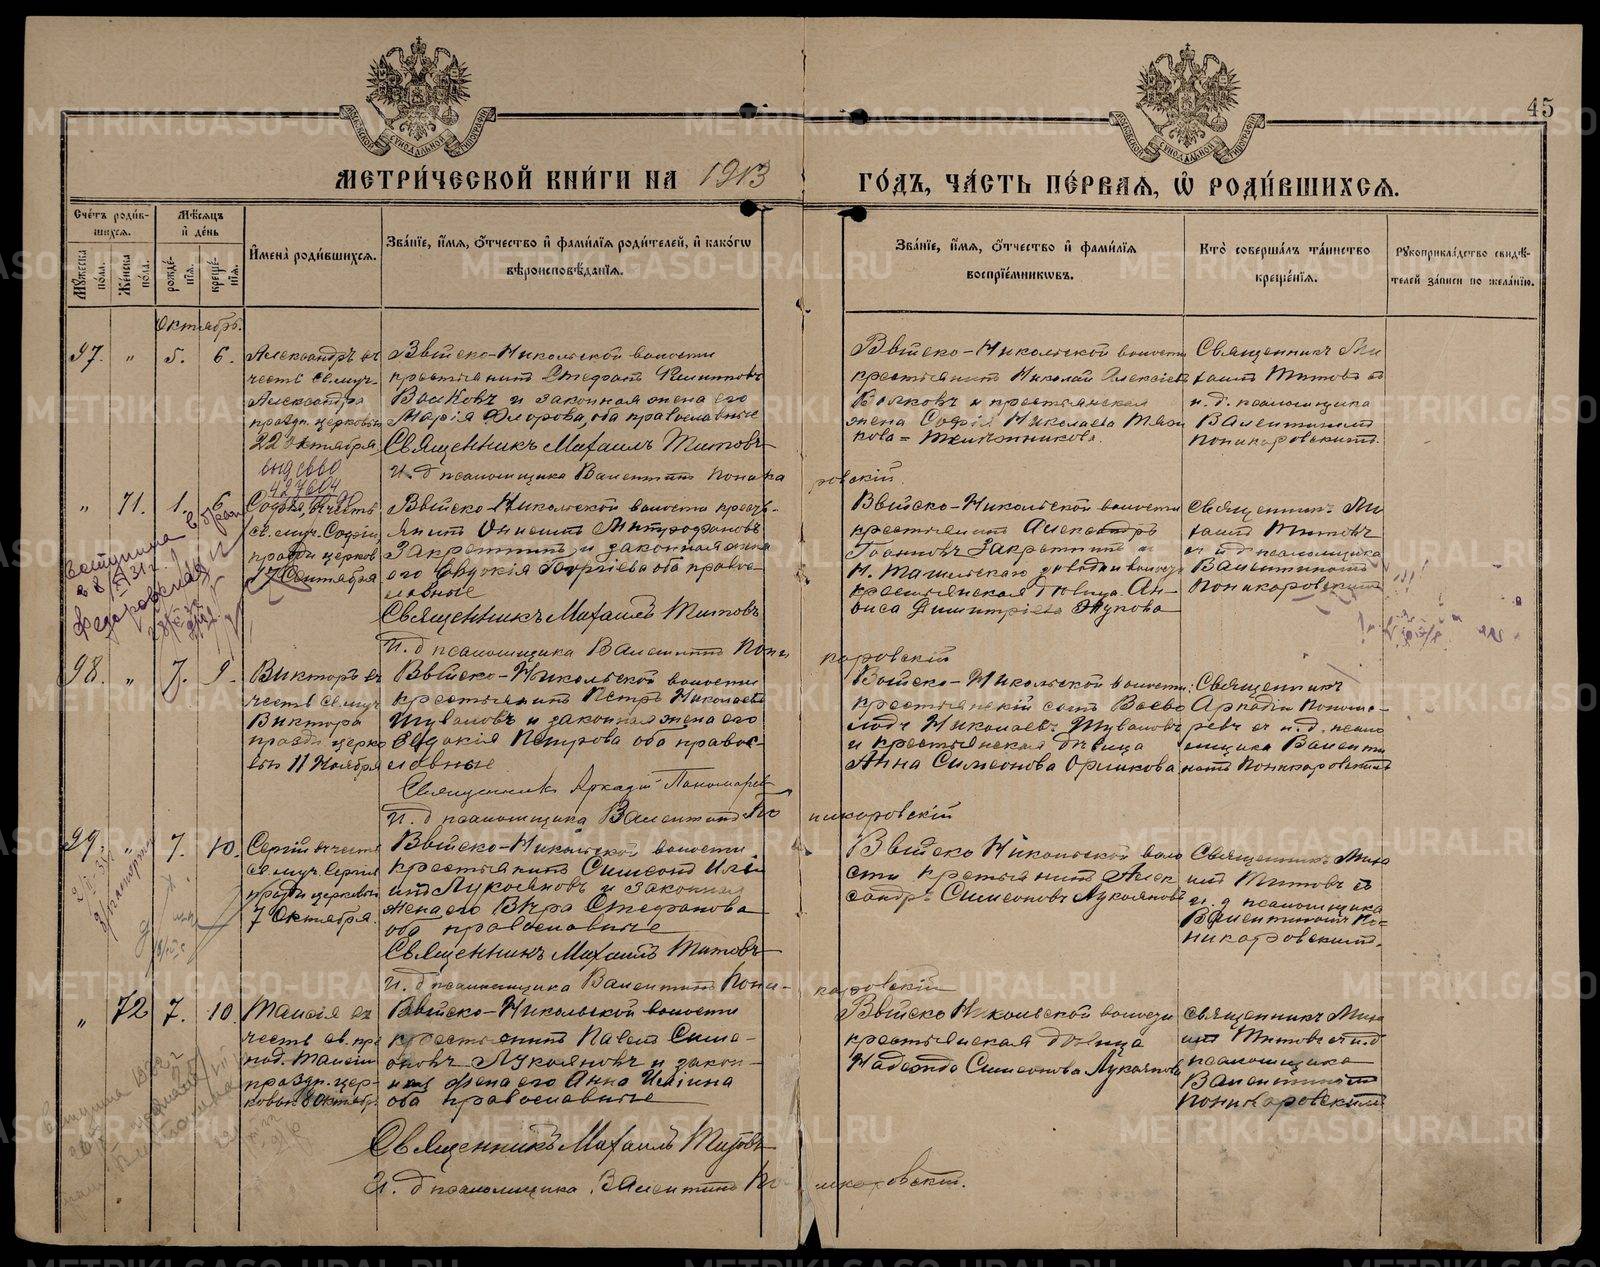 45
МЕТРИ́ЧЕСКОЙ КНИ́ГИ НА 1913 ГО́ДЪ, ЧА́СТЬ ПЕ́РВАЯ, Ѡ҆ РОДИ́ВШИХСЯ.
Сче́тъ роди́в-
шихся.
Мѣ́сяцъ
и҆ де́нь
Мꙋ́жеска по́ла.
Же́нска по́ла.
рожде́-
нїя.
креще́-
нїя.
И҆мена̀ роди́вшихся.
Зва́нїе, и҆́мя, ѻ҆́тчество и҆ фами́лїя роди́телей, и҆ како́гѡ
вѣроисповѣ́данїя.
Зва́нїе, и҆́мя, ѻ҆́тчество и҆ фами́лїя
воспрїе́мникѡвъ.
Кто̀ соверша́лъ та́инство
креще́нїя.
Рꙋкоприкла́дство свидѣ́-
телей за́писи по жела́нїю.
Октябрь.
97.
"
5.
6.
Александръ въ
честь св. муч.
Александра
праздн. церковью
22 октября
выдево
427604
Ввійско-Никольской волости
крестьянинъ Стефанъ Филиповъ
Волковъ и законная жена его
Марія Флорова, оба православные
Священникъ Михаилъ Титовъ
И. д псаломщика Валентинъ Поникаровскій.
Ввійско-Никольской волости
крестьянинъ Николай Алексіевъ
Волковъ и крестьянская
жена Софія Николаева
Священникъ Ми
хаилъ Титовъ съ
и. д. псаломщика
Валентиномъ
Поникаровскимъ.
"
71.
1.
6
София, въ честь
св. муч. Софіи,
праздн церков
17 Сентября
Ввійско-Никольской волости кресть-
янинъ Онисимъ Митрофановъ
Закрятинъ и законная жена
его Евдокія Георгіева оба правос-
лавные
Священникъ Михаилъ Титовъ
И. д псаломщика Валентинъ Поникаровскій
Ввійско-Никольской волости
крестьянинъ Александръ
Іоанновъ Закрятинъ и
Н. Тагильскаго завода и волости
крестьянская дѣвица Ан-
фиса Димитріева Жукова
Священникъ Ми
хаилъ Титовъ
съ и д псаломщика
Валентиномъ
Поникаровскимъ
98.
"
7.
9.
Викторъ въ
честь св муч
Виктора
праздн церко
вью 11 Ноября
Ввійско-Никольской волости
крестьянинъ Петръ Николаевъ
Шуваловъ и законная жена его
Евдокія Петрова оба правос-
лавные
Священникъ Аркадій Пономаревъ
И. д псаломщика Валентинъ Поникаровскій
Войско-Никольской волости
крестьянскій сынъ Всево
лодъ Николаевъ Шуваловъ
и крестьянская дѣвица
Анна Симеонова
Священникъ
Аркадій Понома-
ревъ съ и. д. псало
мщика Валенти
номъ Поникаровскимъ
99.
"
7.
10.
Сергій въ честь
св. муч. Сергія
праздн церковью
7 Октября.
Ввійско-Никольской волости
крестьянинъ Симеонъ Иль-
инъ Лукояновъ и законная
жена его Вѣра Стефанова
оба православные
Священникъ Михаилъ Титовъ
И. д псаломщика Валентинъ Поникаровскій
Ввійско Никольской воло
сти крестьянинъ Алек
сандръ Симеоновъ Лукояновъ
Священникъ Миха
илъ Титовъ съ
и. д псаломщика
Валентиномъ По-
никаровскимъ.
"
72
7.
10.
Таисія въ
честь св. пре
под. Таисіи
праздн. цер-
ковью 8 Октябр.
Ввійско-Никольской волости
крестьянинъ Павелъ Симе-
оновъ Лукояновъ и закон-
ная жена его Анна Ильина
оба православные
Священникъ Михаилъ Титовъ
И. д псаломщика Валентинъ Поникаровскій.
Ввійско Никольской волости
крестьянская дѣвица
Надежда Симеонова Лукоянова
Священникъ Миха
илъ Титовъ съ и.д
псаломщика
Валентиномъ
Поникаровскимъ
METRIKI.GASO-URAL.RU